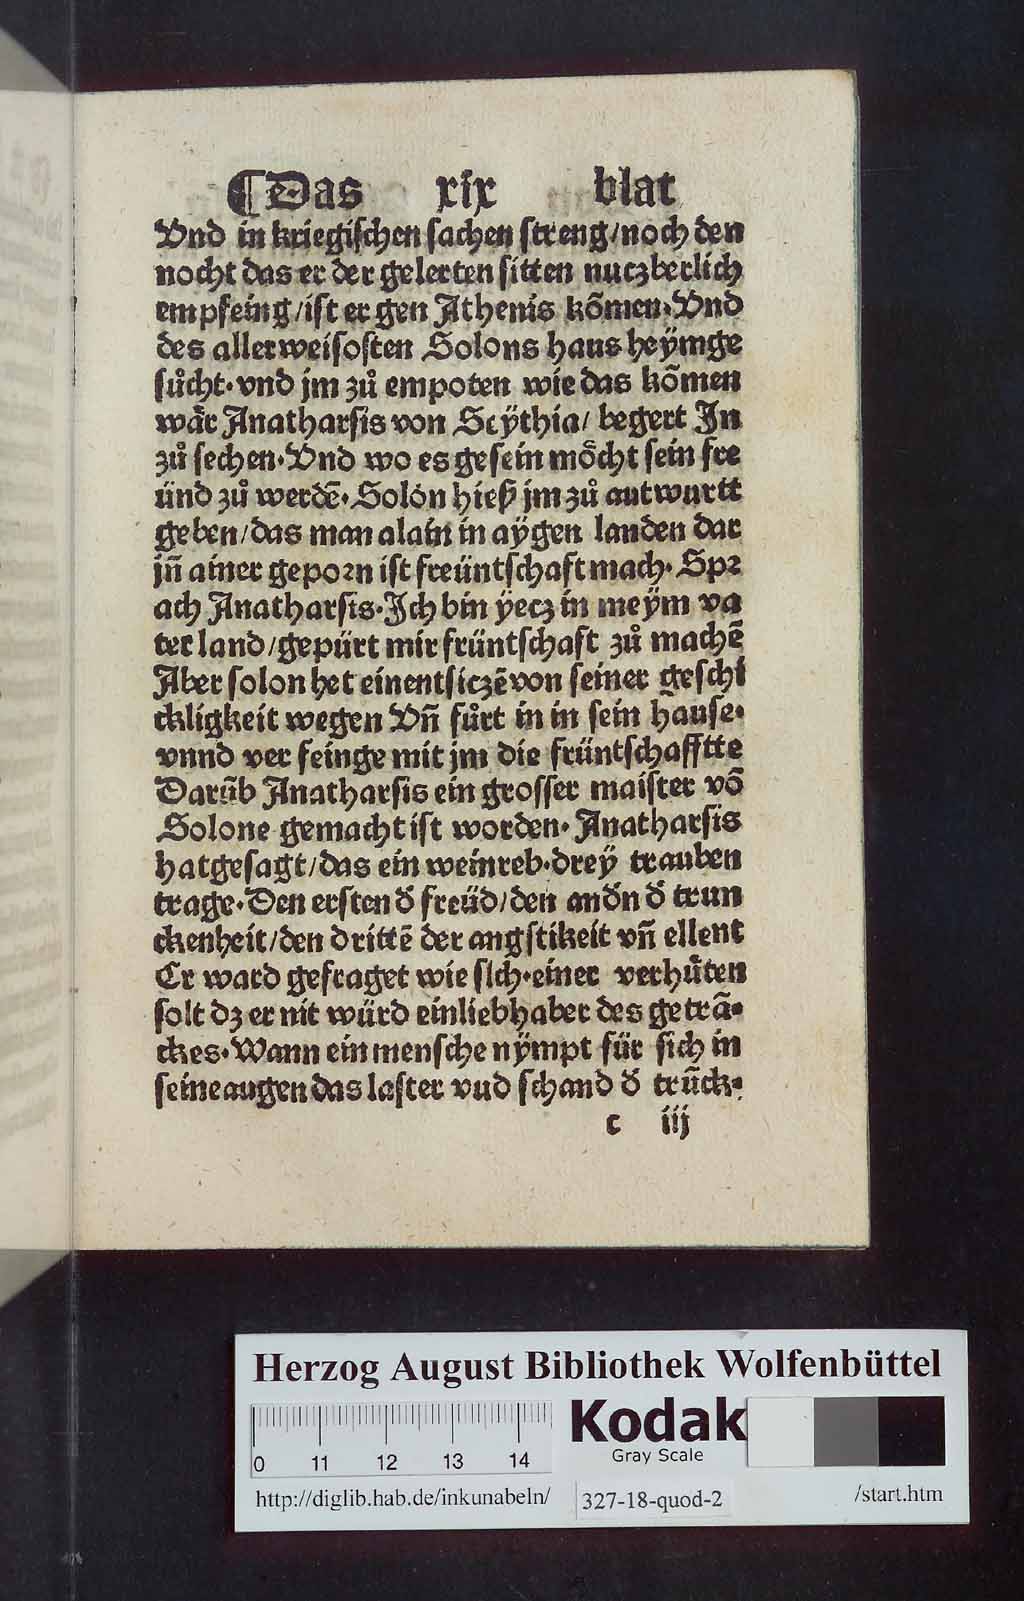 ¶Das xix blat
Vnd in kriegischen sachen streng/noch den
nocht das er der gelerten sitten nuczberlich
empfeing/ist er gen Athenis kõmen·Vnd
des allerweisosten Solons haus heÿmge
sůcht·vnd jm zů empoten wie das kõmen
wår Anatharsis von Scÿthia/ begert In
zů sechen·Vnd wo es gesein mõcht sein fre
ünd zů werdẽ·Solon hieß jm zů autwurtt
geben/das man alain in aÿgen landen dar
jn̄ ainer geporn ist freüntschaft mach· Spr
ach Anatharsis·Ich bin ÿecz in meÿm va
ter land/gepürt mir früntschaft zů machẽ
Aber solon het einentsiczẽ von seiner geschi
ckligkeit wegen Vn̄ fůrt in in sein hause·
vnnd ver feinge mit jm die früntschafftte
Darũb Anatharsis ein grosser maister võ
Solone gemacht ist worden· Anatharsis
hatgesagt/das ein weinreb·dreÿ trauben
trage·Den ersten ð freüd/den anðn ð trun
ckenheit/den drittẽ der angstikeit vn̄ ellent
Er ward gefraget wie sich·einer verhůten
solt dz er nit würd einliebhaber des geträ·
ckes·Wann ein mensche nÿmpt für sich in
seine augen das laster vud schand ð trũck·
c iij
Herzog August Bibliothek Wolfenbüttel
0 11 12 13 14
Kodak
Gray Scale
http://diglib.hab.de/inkunabeln/ 327-18-quod-2 /start.htm